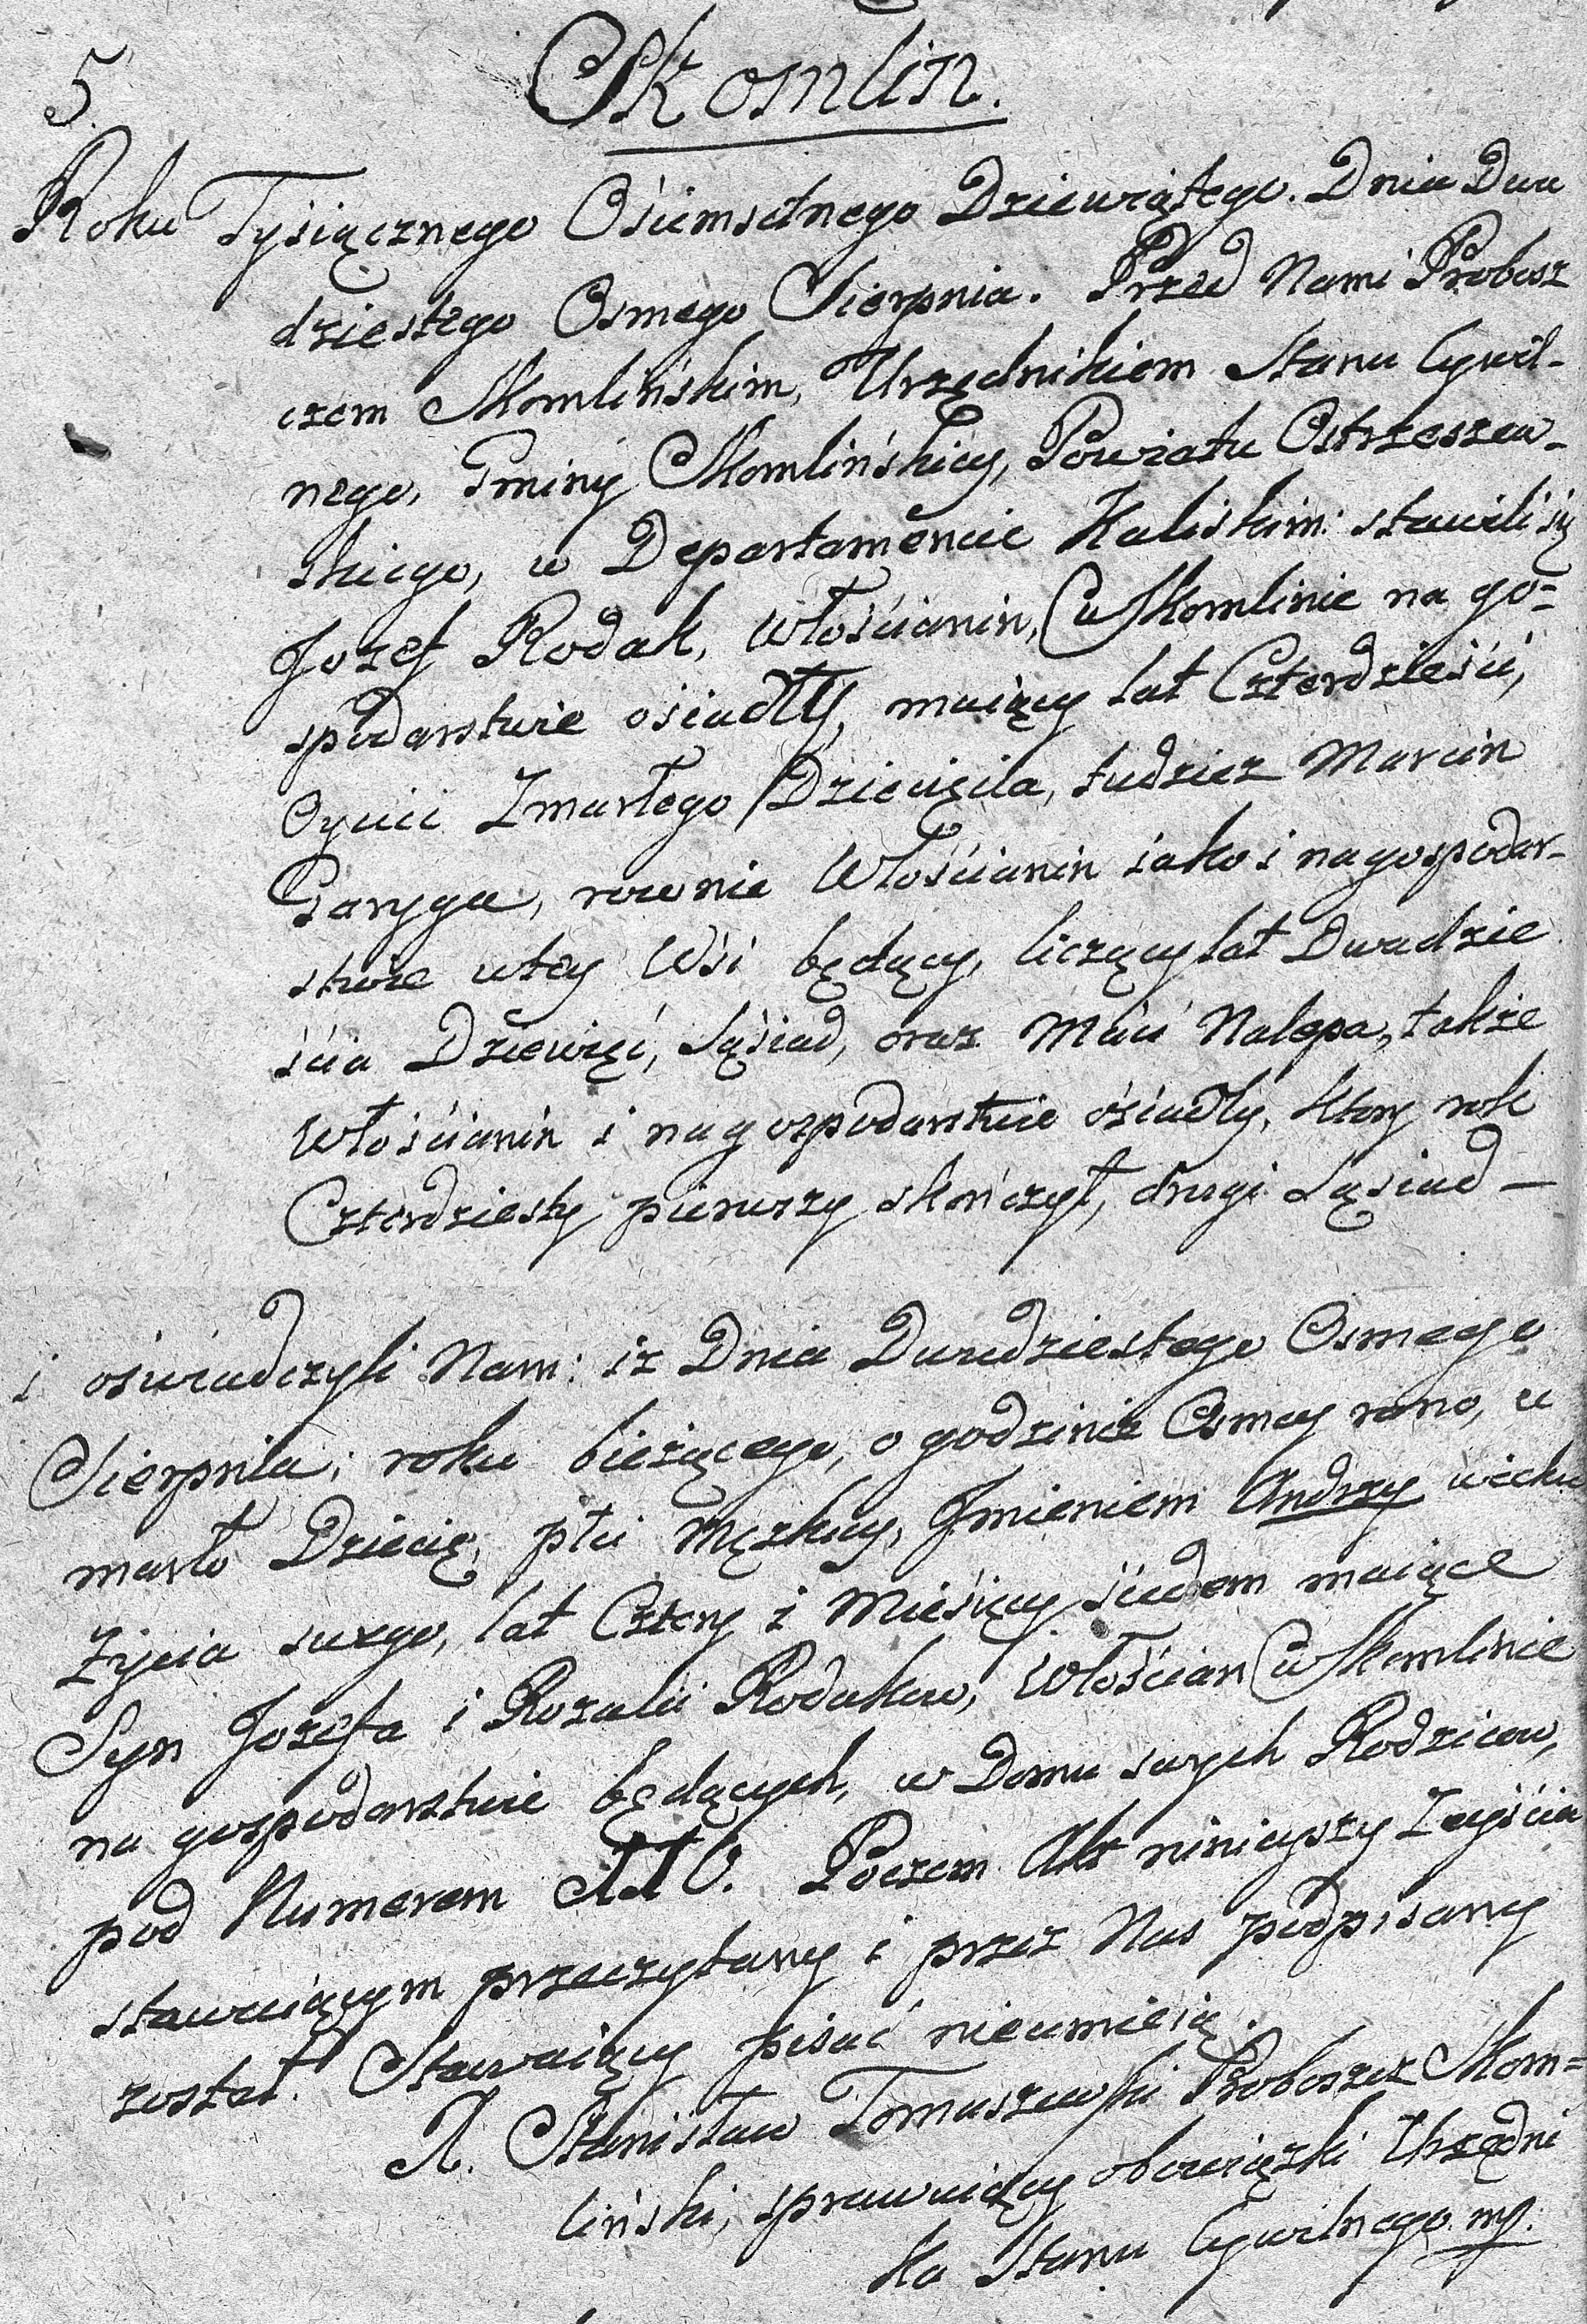 5.
Skomlin.
Roku Tysiącznego Ośiemsetnego Dziewiątego. Dnia Dwu
dziestego Osmego Sierpnia. Przed Nami Probosz
czem Skomlińskim, Urzędnikiem Stanu Cywil-
nego, Gminy Skomlińskiey, Powiatu Ostrzeszew-
skiego, w Departamencie Kaliskim: stawili się
Jozef Rodak, Włościanin, w Skomlinie na go=
spodarstwie osiadły, maiący lat Czterdzieści,
Oyciec Zmarłego Dziecięcia, tudzież Marcin
Paryga, rownie Włościanin iako i na gospodar-
stwie w tey Wsi będący, liczący lat Dwadzie
ścia Dziewięć, Sąsiad, oraz Maci Nalepa, także
Włościanin i na gospodarstwie ośiadły, ktory rok
Czterdziesty pierwszy skończył, drugi Sąsiad —
i oświadczyli Nam: iż Dnia Dwudziestego Osmego
Sierpnia, roku bieżącego, o godzinie Osmey rano, u
marło Dziecię, płci Męzkiey, Imieniem Andrzy wieku
życia swego, lat Cztery i Miesięcy siedem maiące
Syn Jozefa i Rozalii Rodakow, Włościan w Skomlinie
na gospodarstwie będących, w Domu swych Rodzicow,
pod Numerem Poczem Akt ninieyszy Zeyścia
stawaiącym przeczytany i przez Nas podpisany
został. Stawaiący pisać nieumieią.
X. Stanisław Tomaszewski Proboszcz Skom=
liński, sprawuiący obowiązki Urzędni
ka Stanu Cywilnego mp.